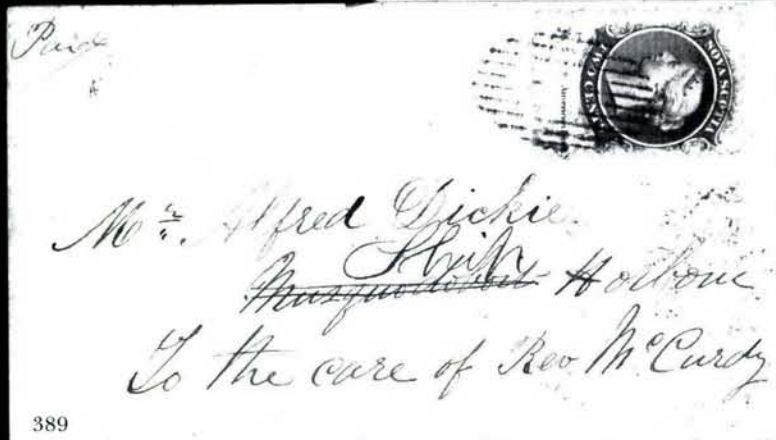 Paid
NOVA SCOTIA
Mr. Alfred Dickie
Ship
Musquodoboit Harbour
To the care of Rev McCurdy
389